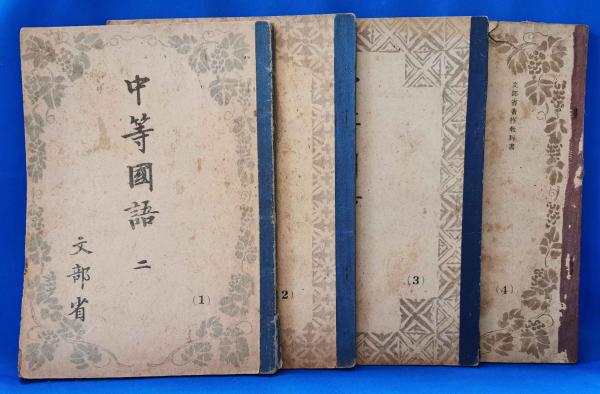 中等國語
二
文部省
(1)
(2)
(3)
文部省著作教科書
(4)